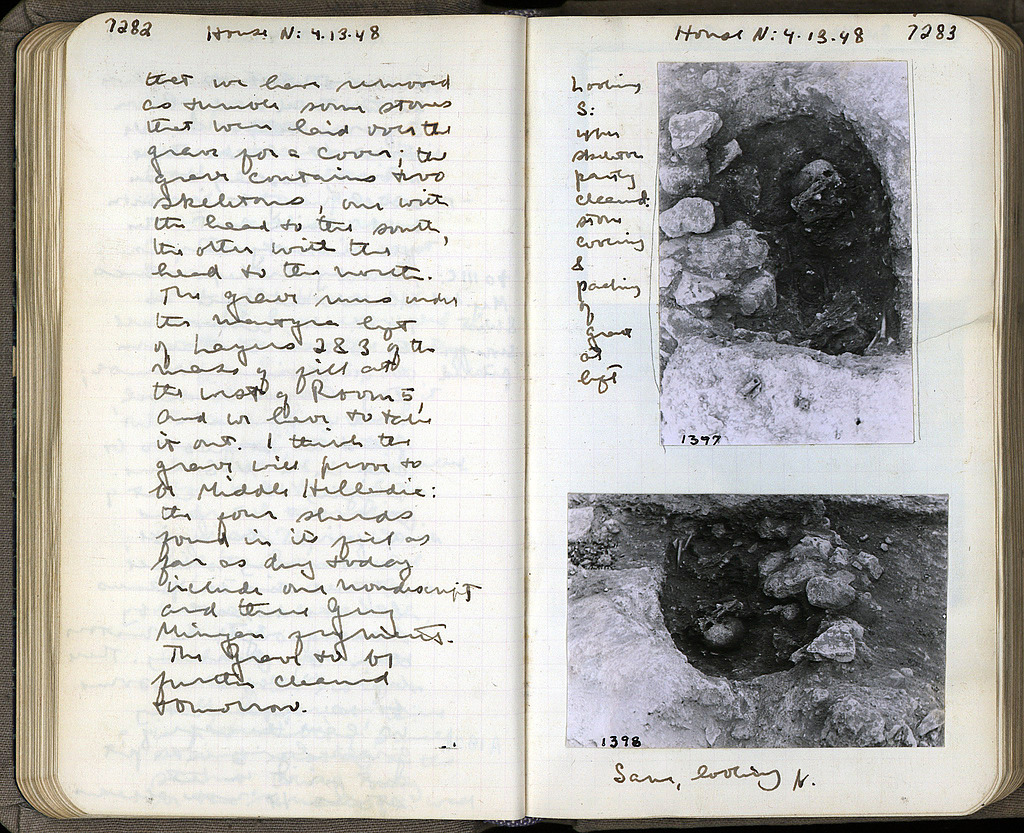 7282
House N: 4.13.48
that we have removed
as tumble some stones
that were laid over the
grave for a cover; the
grave contains two
skeletons, one with
the head to the south,
the other with the
head to the north.
The grave runs under
the martyra left
of Layers 2 & 3 of the
mass of fill at
the west of Room 5,
and we have to take
it out. I think the
grave will prove to
be Middle Helladic:
the four sherds
found in its fill as
far as dug today
include one nondescript
and three Grey
Minyan fragments.
The grave to be
further cleaned
tomorrow.
House N: 4.13.48
7283
Looking
S:
upper
skeleton
partly
cleaned:
stone
covering
&
packing
of
grave
at
left
1397
1398
Same, looking N.